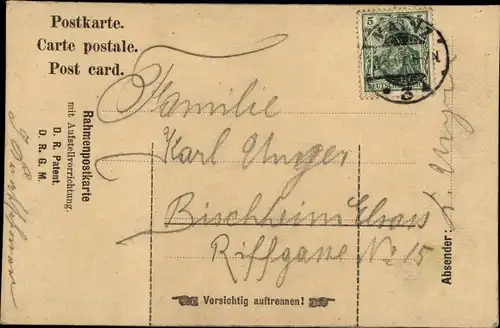 Postkarte.
Carte postale.
Post card.
Rahmenpostkarte
mit Aufstellvorrichtung.
D. R. Patent.
D. R. G. M.
5
Familie
Karl Unger
Bischheim Elsass
Riffgane No 15
Vorsichtig auftrennen!
Absender: